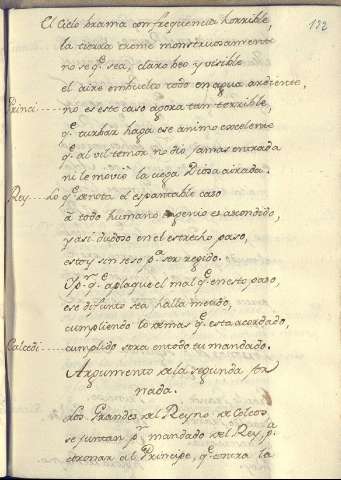 122
El Cielo brama con frequencia horrible,
la tierra treme monstruosamente
no se q.e sea, claro veo y visible
el aire embuelto todo en agua ardiente,
Princi..... no es este caso agora tan terrible,
q.e turbar haga ese animo excelente
q.e al vil temor no dio jamas entrada
ni le movió la ciega Diosa airada.
Rey..... Lo q.e denota el espantable caso
a todo humano ingenio es ascondido,
y asi dudoso en el estrecho paso,
estoy sin seso p.a ser regido.
p.r q.e aplaque el mal q.e en esto paso,
ese difunto sea halla metido,
cumpliendo lo demas q.e esta acordado,
Calcedi..... cumplido sera en todo tu mandado.
Argumento de la segunda Jor
nada.
Los Grandes del Reyno de Colcos,
se juntan p.r mandado del Rey, p.a
coronar al Principe, q.e contra la